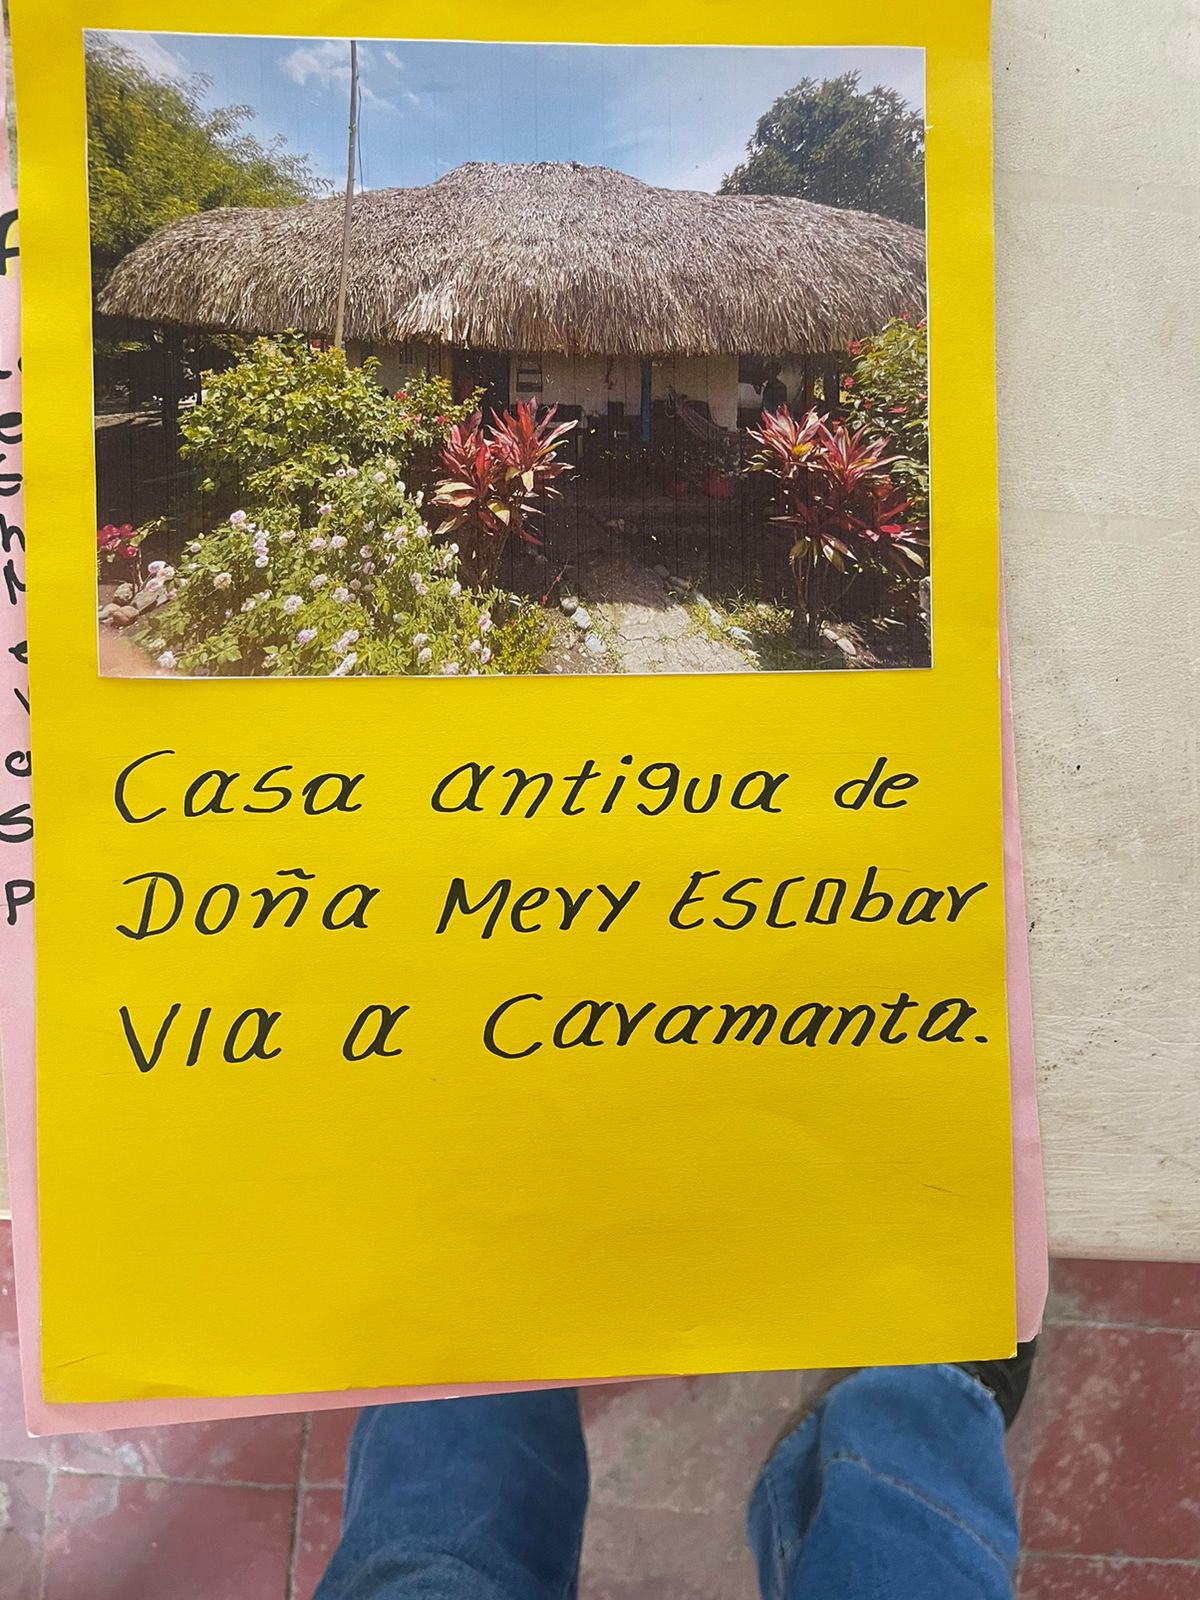 Casa antigua de
Doña Mery Escobar
Via a Caramanta.